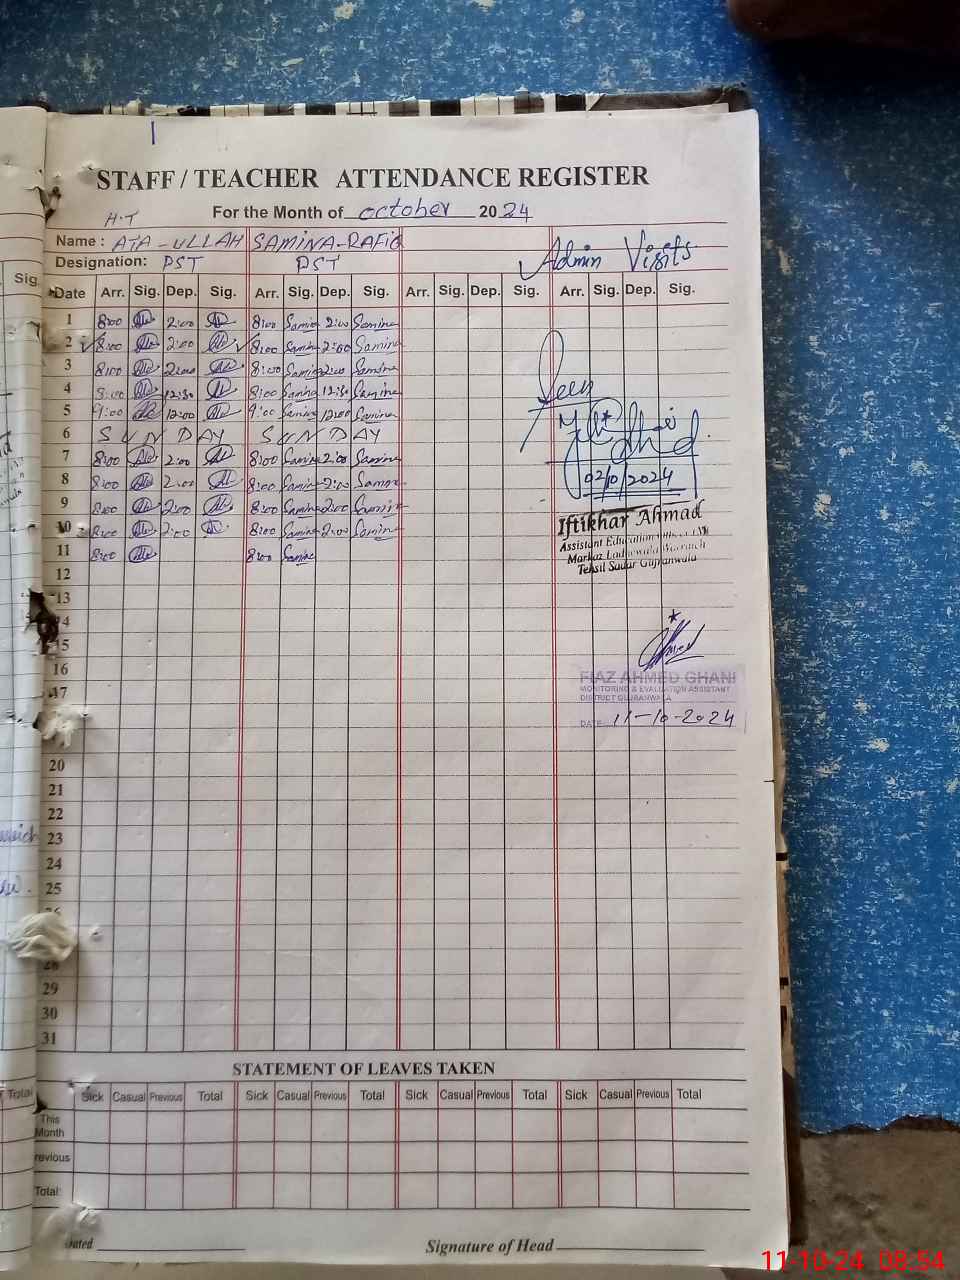 STAFF / TEACHER ATTENDANCE REGISTER
H.T For the Month of October 2024
Name : ATA-ULLAH SAMINA-RAFIQ Admin Visits
Designation: PST PST
Sig. Date Arr. Sig. Dep. Sig. Arr. Sig. Dep. Sig. Arr. Sig. Dep. Sig. Arr. Sig. Dep. Sig.
1 8:00 2:00 8:00 Samina 2:00 Samina
2 8:00 2:00 8:00 Samina 2:00 Samina
3 8:00 2:00 8:00 Samina 2:00 Samina
4 8:00 12:30 8:00 Samina 12:30 Samina
5 9:00 12:00 9:00 Samina 12:00 Samina
6 SUNDAY SUNDAY
7 8:00 2:00 8:00 Samina 2:00 Samina
8 8:00 2:00 8:00 Samina 2:00 Samina
9 8:00 2:00 8:00 Samina 2:00 Samina
10 8:00 2:00 8:00 Samina 2:00 Samina
11 8:00 8:00 Samina
Seen
02/10/2024
Iftikhar Ahmad
Assistant Education
Markaz
Tehsil Sadar Gujranwala
12
13
14
15
16
17
FIAZ AHMED GHANI
MONITORING & EVALUATION ASSISTANT
DISTRICT GUJRANWALA
DATE: 11-10-2024
20
21
22
23
24
25
28
29
30
31
STATEMENT OF LEAVES TAKEN
Total Sick Casual Previous Total Sick Casual Previous Total Sick Casual Previous Total Sick Casual Previous Total
This
Month
revious
Total:
Signature of Head
11-10-24 08:54